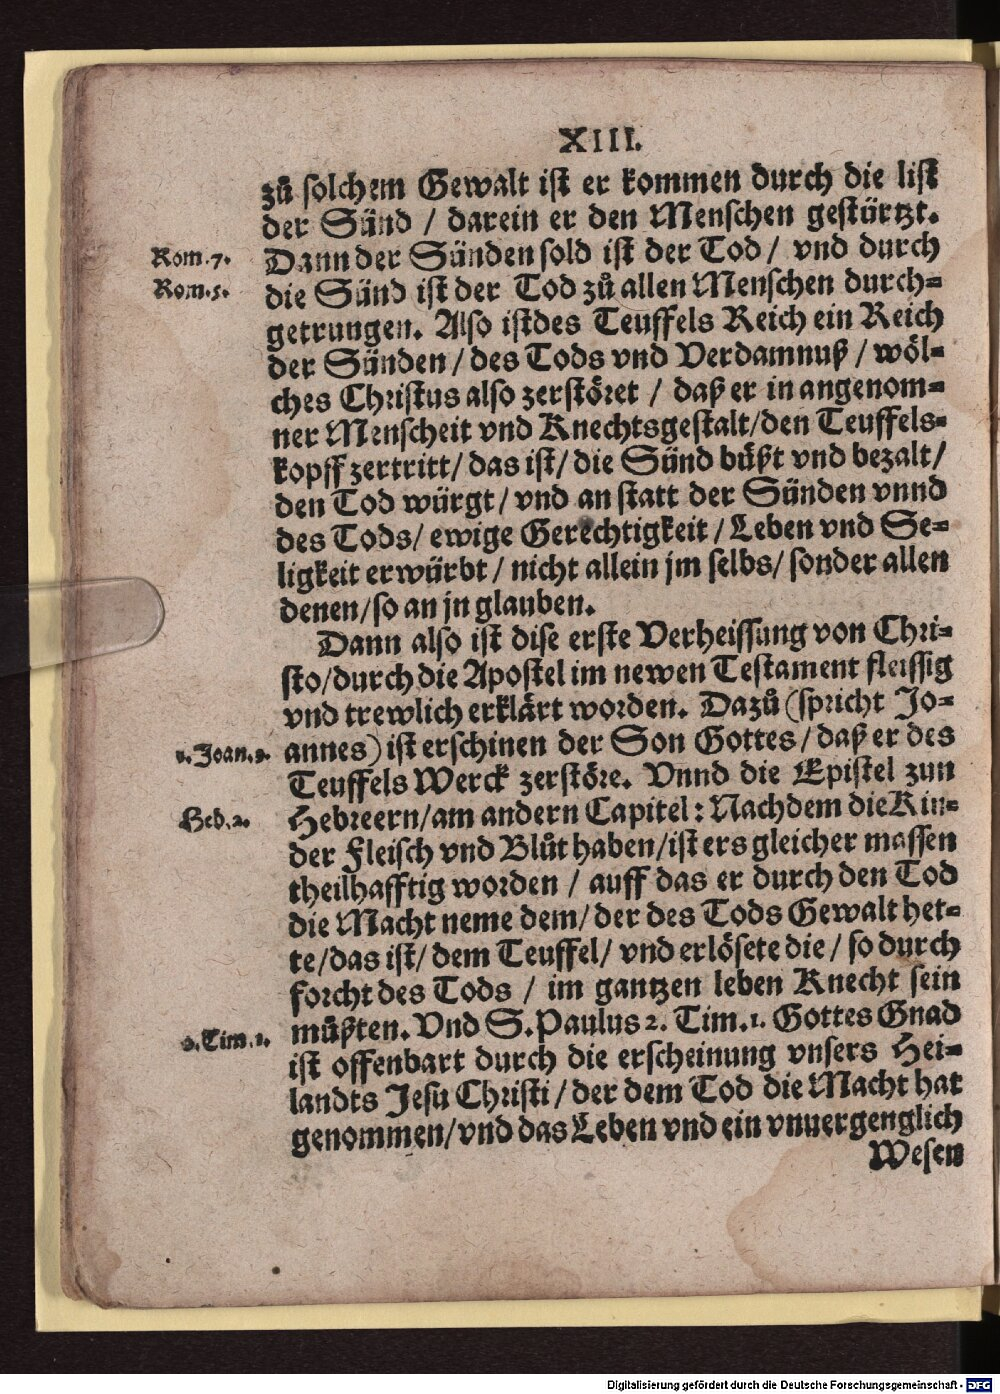 XIII.
zů solchem Gewalt ist er kommen durch die list
der Sünd / darein er den Menschen gestürtzt.
Rom.7. Dann der Sünden sold ist der Tod / vnd durch
Rom.5. die Sünd ist der Tod zů allen Menschen durch-
getrungen. Also ist des Teuffels Reich ein Reich
der Sünden / des Tods vnd Verdamnuß / wöl-
ches Christus also zerstöret / daß er in angenom-
ner Menscheit vnd Knechtsgestalt/den Teuffels-
kopff zertritt/ das ist/ die Sünd büßt vnd bezalt/
den Tod würgt/ vnd an statt der Sünden vnnd
des Tods/ ewige Gerechtigkeit / Leben vnd Se-
ligkeit erwürbt / nicht allein jm selbs/ sonder allen
denen/so an jn glauben.
Dann also ist dise erste Verheissung von Chri-
sto/durch die Apostel im newen Testament fleissig
vnd trewlich erklärt worden. Dazů (spricht Jo-
1.Joan.3. annes) ist erschinen der Son Gottes/ daß er des
Teuffels Werck zerstöre. Vnnd die Epistel zun
Heb.2. Hebreern/am andern Capitel: Nachdem die Kin-
der Fleisch vnd Blůt haben/ist ers gleicher massen
theilhafftig worden / auff das er durch den Tod
die Macht neme dem/ der des Tods Gewalt het-
te/das ist/ dem Teuffel/ vnd erlösete die/ so durch
forcht des Tods / im gantzen leben Knecht sein
2.Tim.1. müßten. Vnd S.Paulus 2. Tim.1. Gottes Gnad
ist offenbart durch die erscheinung vnsers Hei-
landts Jesu Christi / der dem Tod die Macht hat
genommen/vnd das Leben vnd ein vnuergenglich
Wesen
Digitalisierung gefördert durch die Deutsche Forschungsgemeinschaft - DFG